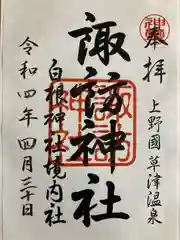 奉拝
上野國草津温泉
諏訪神社
白根神社境内社
令和四年四月三十日